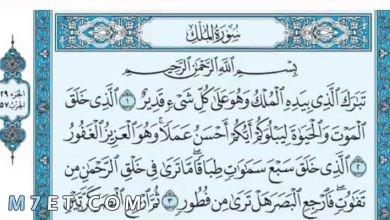 سُورَةُ المُلْكِ
الجزء ٢٩
الحزب ٥٧
بِسْمِ اللَّهِ الرَّحْمَٰنِ الرَّحِيمِ
تَبَارَكَ الَّذِي بِيَدِهِ الْمُلْكُ وَهُوَ عَلَىٰ كُلِّ شَيْءٍ قَدِيرٌ ١ الَّذِي خَلَقَ
الْمَوْتَ وَالْحَيَاةَ لِيَبْلُوَكُمْ أَيُّكُمْ أَحْسَنُ عَمَلًا وَهُوَ الْعَزِيزُ الْغَفُورُ
٢ الَّذِي خَلَقَ سَبْعَ سَمَاوَاتٍ طِبَاقًا مَّا تَرَىٰ فِي خَلْقِ الرَّحْمَٰنِ مِن
تَفَاوُتٍ فَارْجِعِ الْبَصَرَ هَلْ تَرَىٰ مِن فُطُورٍ ٣ ثُمَّ ارْجِعِ الْبَصَرَ كَرَّتَيْنِ
M7ET.COM